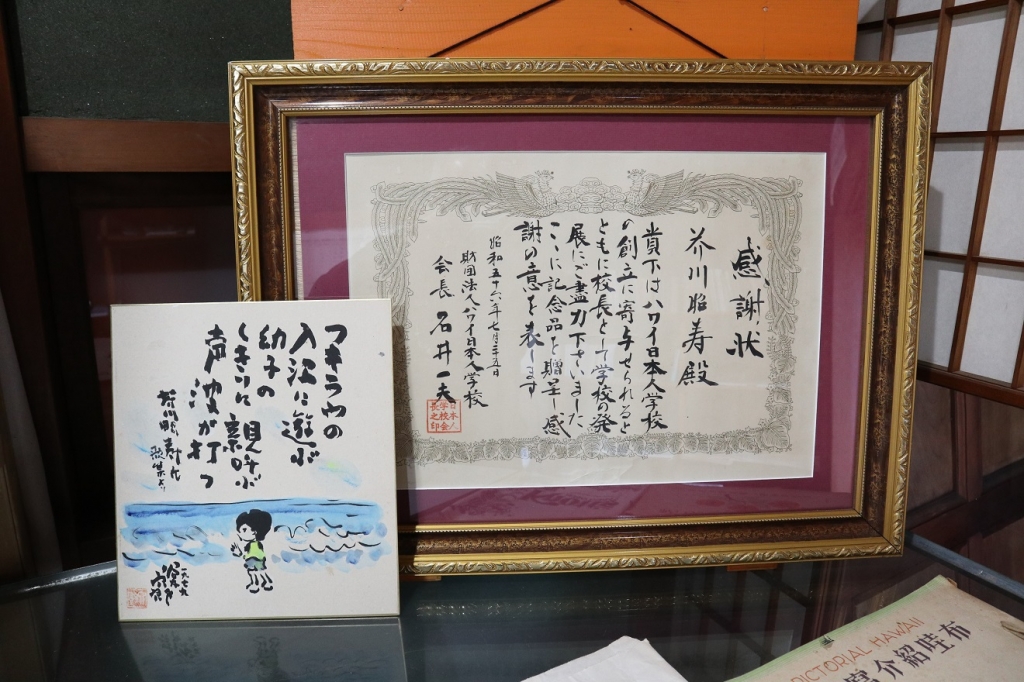 感謝状
芥川昭寿殿
貴下はハワイ日本人学校
の創立に寄与せられると
ともに校長として学校の発
展にご盡力下さいました
ここに記念品を贈呈し感
謝の意を表します
昭和五十六年七月二十五日
財団法人ハワイ日本人学校
会長 石井一夫
日本人
学校会
長之印
ワキラウの
入江に遊ぶ
幼子の
しきりに親呼ぶ
声波が打つ
一九七九
PICTORIAL HAWAII
宮介紹哇布